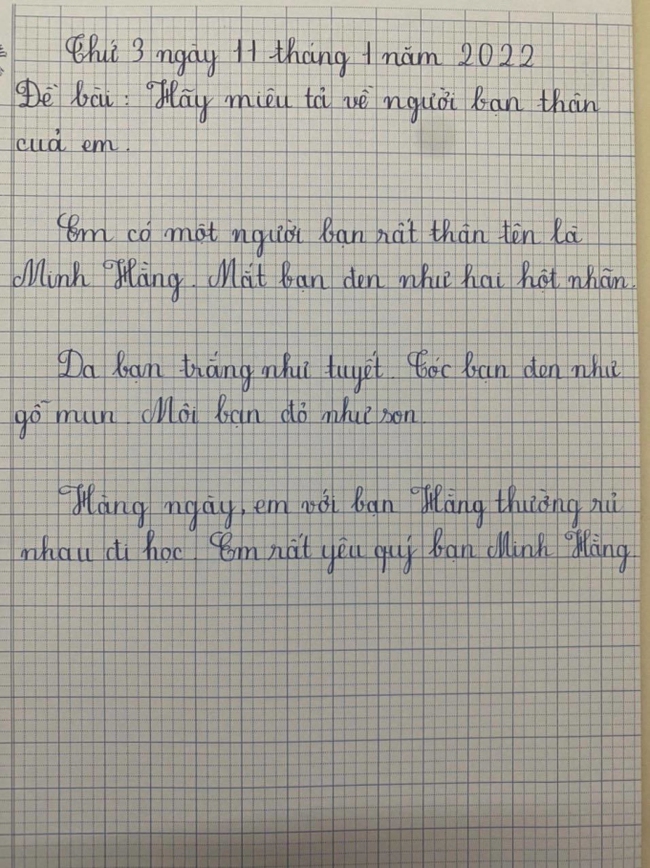 Thứ 3 ngày 11 tháng 1 năm 2022
Đề bài : Hãy miêu tả về người bạn thân
cuả em .
Em có một người bạn rất thân tên là
Minh Hằng . Mắt bạn đen như hai hột nhãn.
Da bạn trắng như tuyết . Tóc bạn đen như
gỗ mun . Môi bạn đỏ như son
Hàng ngày, em với bạn Hằng thường rủ
nhau đi học . Em rất yêu quý bạn Minh Hằng